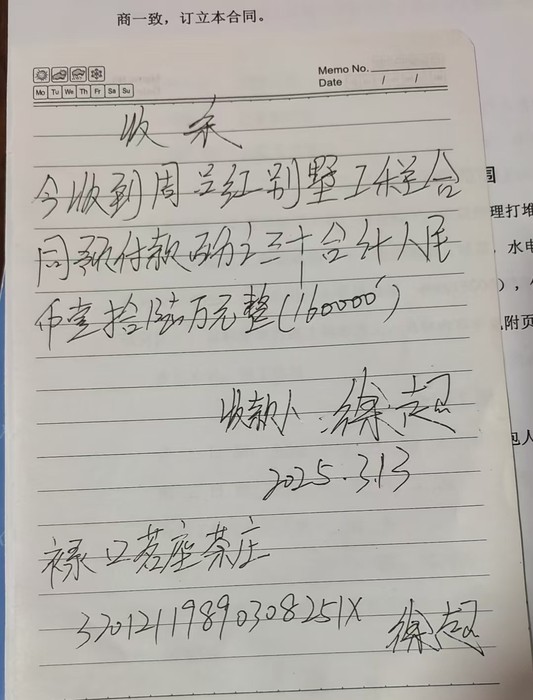 商一致，订立本合同。
Memo No.
Date / /
Mo Tu We Th Fr Sa Su
收条
今收到周吕红别墅工程合
同预付款百分之三十合计人民
币壹拾陆万元整(160000)
收款人:徐超
2025.3.13
禄口茗座茶庄
32012119890308251X 徐超
围
理打堆
，水电
)，
附页
包人